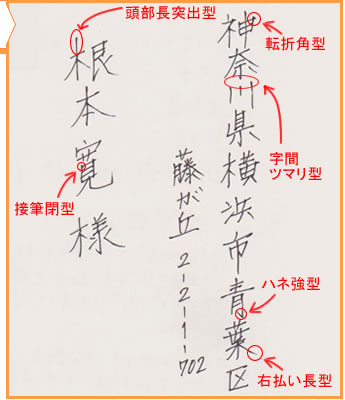 神奈川県横浜市青葉区
藤が丘2-2-1-702
根本寛様
頭部長突出型
転折角型
字間
ツマリ型
接筆閉型
ハネ強型
右払い長型